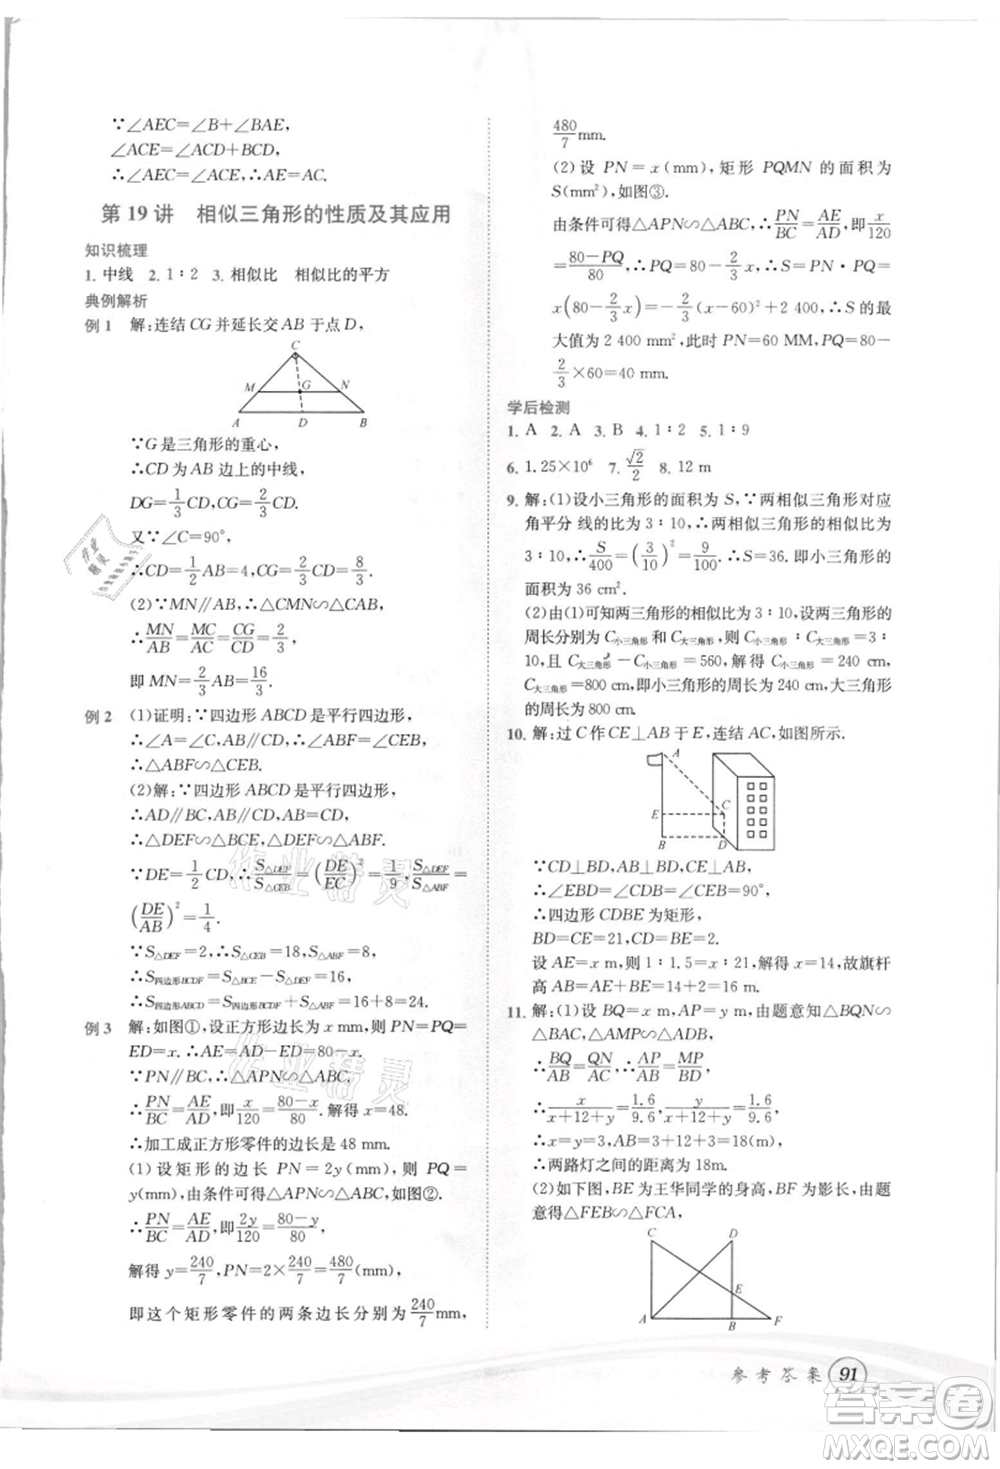 ∵∠AEC=∠B+∠BAE,
∠ACE=∠ACD+BCD,
∴∠AEC=∠ACE,∴AE=AC.
第19讲 相似三角形的性质及其应用
知识梳理
1. 中线 2. 1∶2 3. 相似比 相似比的平方
典例解析
例1 解:连结CG并延长交AB于点D,
C
M G N
A D B
∵G是三角形的重心,
∴CD为AB边上的中线,
DG=1/3CD,CG=2/3CD.
又∵∠C=90°,
∴CD=1/2AB=4,CG=2/3CD=8/3.
(2)∵MN∥AB,∴△CMN∽△CAB,
∴MN/AB=MC/AC=CG/CD=2/3,
即MN=2/3AB=16/3.
例2 (1)证明:∵四边形ABCD是平行四边形,
∴∠A=∠C,AB∥CD,∴∠ABF=∠CEB,
∴△ABF∽△CEB.
(2)解:∵四边形ABCD是平行四边形,
∴AD∥BC,AB∥CD,
∴△DEF∽△BCE,△DEF∽△ABF.
∵DE=1/2CD,∴S△DEF/S△CEB=(DE/EC)²=1/9,S△DEF/S△ABF=
(DE/AB)²=1/4.
∵S△DEF=2,∴S△CEB=18,S△ABF=8,
∴S四边形BCDF=S△BCE-S△DEF=16,
∴S四边形ABCD=S四边形BCDF+S△ABF=16+8=24.
例3 解:如图①,设正方形边长为x mm,则PN=PQ=
ED=x.∴AE=AD-ED=80-x.
∵PN∥BC,∴△APN∽△ABC,
∴PN/BC=AE/AD,即x/120=80-x/80.解得x=48.
∴加工成正方形零件的边长是48 mm.
(1)设矩形的边长PN=2y(mm),则PQ=
y(mm),由条件可得△APN∽△ABC,如图②.
∴PN/BC=AE/AD,即2y/120=80-y/80,
解得y=240/7,PN=2×240/7=480/7(mm),
即这个矩形零件的两条边长分别为240/7mm,
480/7mm.
(2)设PN=x(mm),矩形PQMN的面积为
S(mm²),如图③,
由条件可得△APN∽△ABC,∴PN/BC=AE/AD,即x/120
=80-PQ/80,解得PQ=80-2/3x.∴S=PN·PQ=
x(80-2/3x)=-2/3(x-60)²+2400,∴S的
最大值为2 400 mm²,此时PN=60 MM,PQ=80-
2/3×60=40 mm.
学后检测
1. A 2. A 3. B 4. 1∶2 5. 1∶9
6. 1.25×10⁶ 7. √2/2 8. 12 m
9. 解:(1)设小三角形的面积为S,∵两相似三角形对应
角平分 线的比为3∶10,∴两相似三角形的相似比
为3∶10,∴S/400=(3/10)²=9/100,∴S=36.即小三角形的
面积为36 cm².
(2)由(1)可知两三角形的相似比为3∶10,设两三角形的
周长分别为C小三角形和C大三角形,则C小三角形∶C大三角形=3∶
10,且C大三角形-C小三角形=560,解得C小三角形=240 cm,
C大三角形=800 cm,即小三角形的周长为240 cm,大三角形
的周长为800 cm.
10. 解:过C作CE⊥AB于E,连结AC,如图所示.
A
E C
B D
∵CD⊥BD,AB⊥BD,CE⊥AB,
∴∠EBD=∠CDB=∠CEB=90°,
∴四边形CDBE为矩形,
BD=CE=21,CD=BE=2.
设AE=x m,则1∶1.5=x∶21,解得x=14,故旗杆
高AB=AE+BE=14+2=16 m.
11. 解:(1)设BQ=x m,AP=y m,由题意知△BQN∽
△BAC,△AMP∽△ADB,
∴BQ/BA=QN/AC,AP/AB=MP/DB,
∴x/x+12+y=1.6/9.6,y/x+12+y=1.6/9.6,
∴x=y=3,AB=3+12+3=18(m),
∴两路灯之间的距离为18m.
(2)如下图,BE为王华同学的身高,BF为影长,由题
意得△FEB∽△FCA,
C D
E
A B F
参考答案 91
作业精灵
作业精灵
作业精灵
答案圈
MXQE.COM